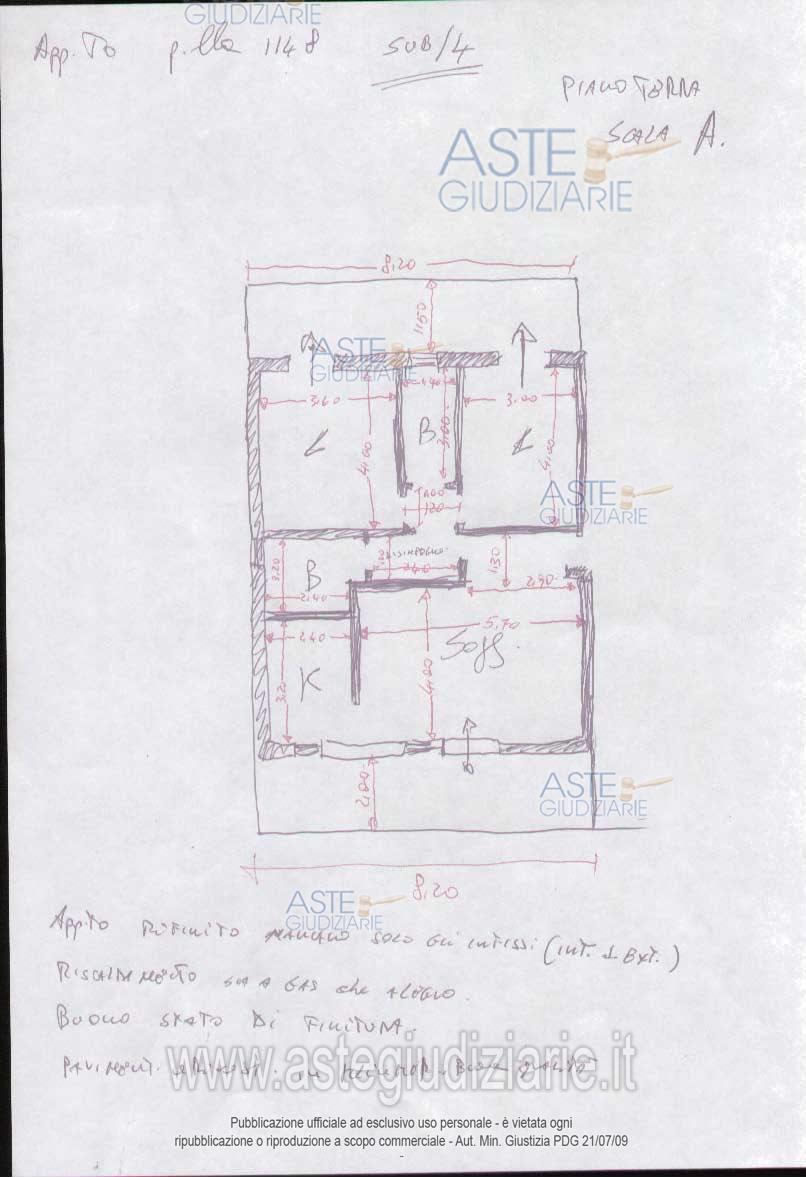 ASTE
GIUDIZIARIE
App.to p.lla 1148 SUB/4
PIANO TERRA
SCALA A.
ASTE
GIUDIZIARIE
8,20
1,50
ASTE
GIUDIZIARIE
3,60
1,40
3,00
L
B
L
4,00
3,00
4,00
ASTE
GIUDIZIARIE
1,00
1,20
DISIMPEGNO
B
2,20
2,40
2,40
1,30
2,90
2,40
5,70
Sogg.
K
3,20
4,00
2,00
ASTE
GIUDIZIARIE
8,20
ASTE
GIUDIZIARIE
App.to RIFINITO MANCANO SOLO GLI INFISSI (INT. I EXT.)
RISCALDAMENTO SIA A GAS che A LEGNO.
BUONO STATO DI FINITURA.
PAVIMENTI IN
www.astegiudiziarie.it
Pubblicazione ufficiale ad esclusivo uso personale - è vietata ogni
ripubblicazione o riproduzione a scopo commerciale - Aut. Min. Giustizia PDG 21/07/09
-